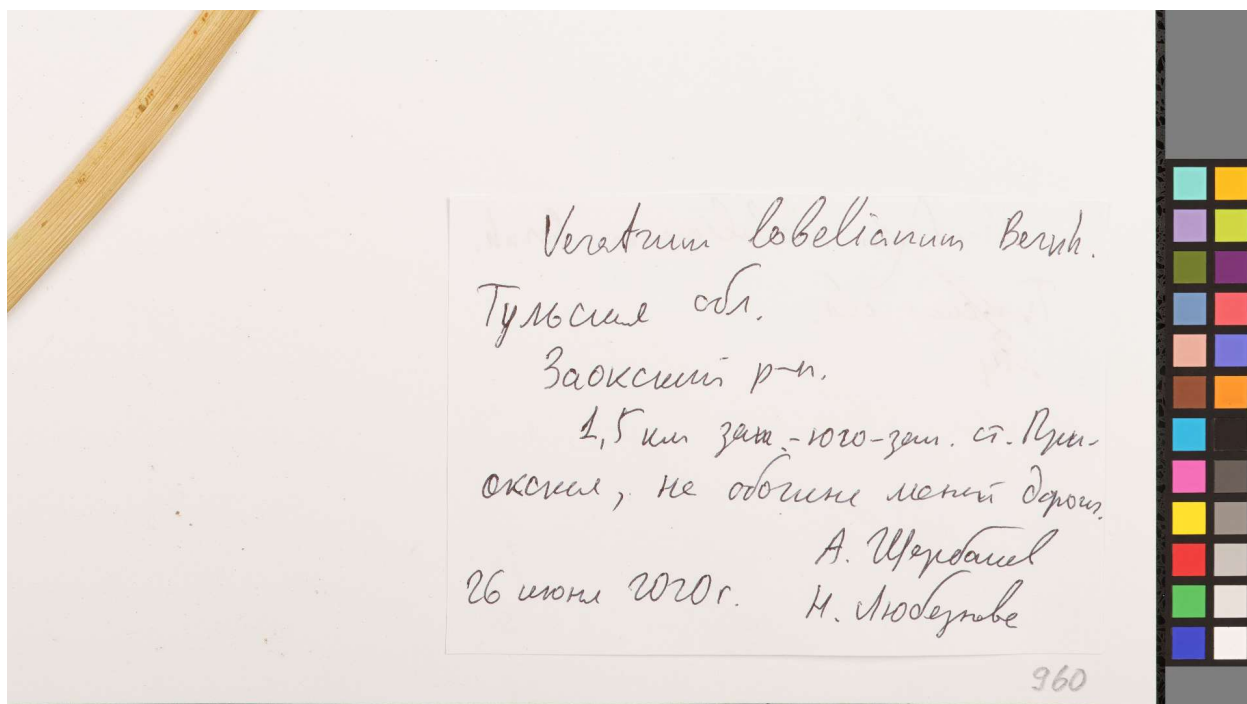 Veratrum lobelianum Bernh.
Тульская обл.
Заокский р-н.
1,5 км зап.-юго-зап. ст. При-
окская, на обочине лесной дороги.
А. Щербаков
26 июня 2020 г. Н. Любезнова
960